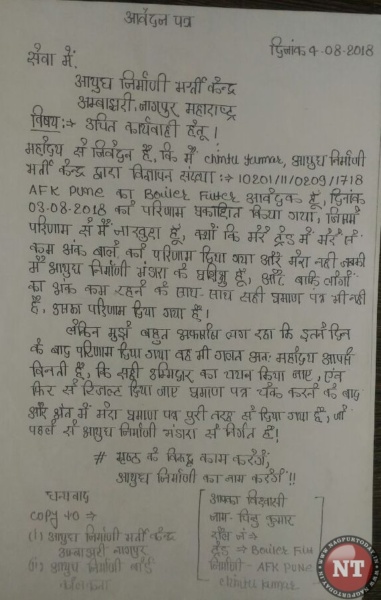 आवेदन पत्र
दिनांक 4-08-2018
सेवा में,
आयुध निर्माणी भर्ती केन्द्र
अम्बाझरी, नागपुर महाराष्ट्र
विषय :→ उचित कार्यवाही हेतू।
महोदय से निवेदन है, कि मैं chintu kumar, आयुध निर्माणी
भर्ती केन्द्र द्वारा विज्ञापन संख्या :→ 10201/11/0209/1718
AFK Pune का Boiler Fitter आवेदक हूँ, दिनांक
03-08-2018 को परिणाम प्रकाशित किया गया, जिसमें
परिणाम से मैं नाखुश हूँ, क्यों कि मेरे ट्रेड में मेरे से
कम अंक वालों को परिणाम दिया गया और मेरा नहीं जबकी
मैं आयुध निर्माणी भंडारा के प्रशिक्षु हूँ, और बाकि लोगों
का अंक कम रहने के साथ-साथ सही प्रमाण पत्र भी नहीं
है, उसका परिणाम दिया गया है।
लेकिन मुझे बहुत अफसोस लग रहा कि इतने दिन
के बाद परिणाम दिया गया वह भी गलत अतः महोदय आपसे
विनती है, कि सही उम्मिदवार का चयन किया जाए, एवं
फिर से रिजल्ट दिया जाए प्रमाण पत्र चेक करने के बाद
और अंत में मेरा प्रमाण पत्र पुरी तरह से दिया गया है, जो
पहले से आयुध निर्माणी भंडारा से निर्गत है!
# भ्रष्ठ के विरूद्ध काम करेंगे,
आयुध निर्माणी का नाम करेंगे!!
धन्यवाद
copy to ⇒
(1) आयुध निर्माणी भर्ती केन्द्र
अम्बाझरी नागपुर
(2) आयुध निर्माणी बोर्ड
कोलकाता
आपका विश्वासी
नाम- चिंतु कुमार
ट्रेड ⇒ Boiler Fitt
निर्माणी - AFK PUNE
chintu kumar
NT
WWW.NAGPURTODAY.IN